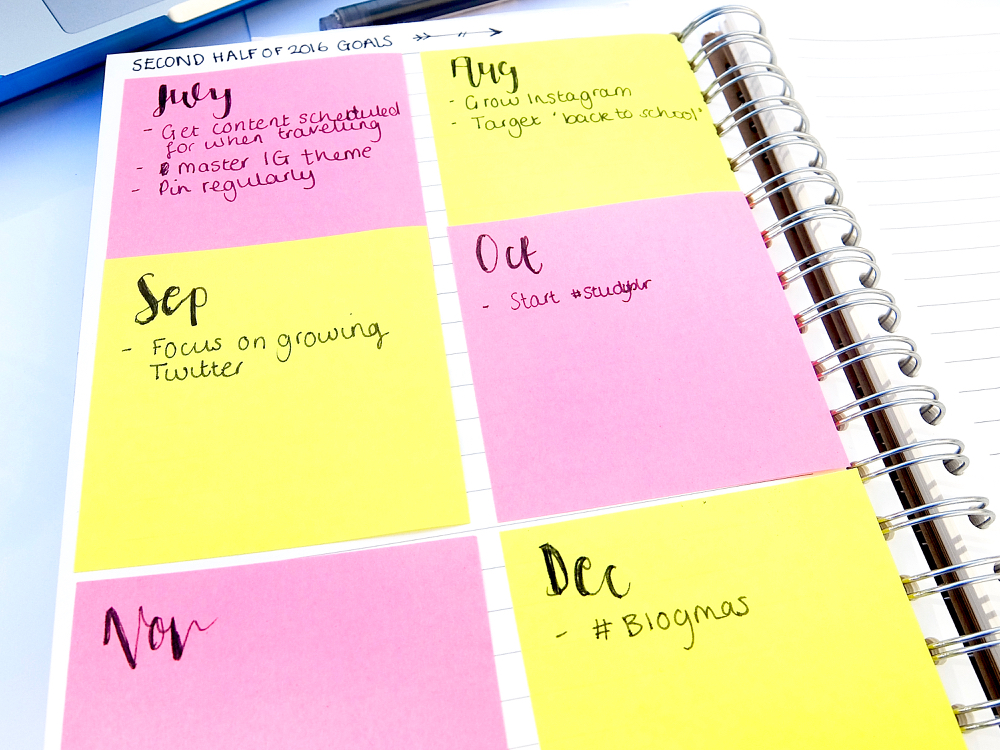 SECOND HALF OF 2016 GOALS
July
- Get content scheduled
for when travelling
- master IG theme
- Pin regularly
Aug
- Grow Instagram
- Target 'back to school'
Sep
- Focus on growing
Twitter
Oct
- Start #studyblr
Nov
Dec
- #Blogmas